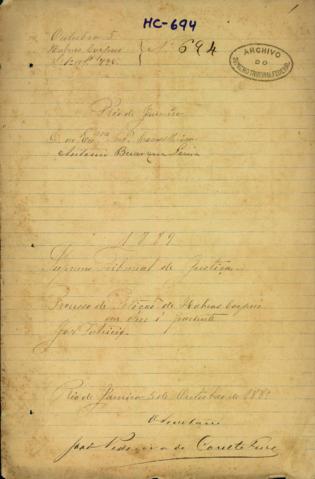 HC-694
Outubro 5
Habeas Corpus
Nº 694
ARCHIVO
DO
SUPREMO TRIBUNAL FEDERAL
Rio de Janeiro
O
Antonio Buarque Lima
1889
Supremo Tribunal de Justiça
Processo de Petição de Habeas Corpus
em que é paciente
José Patricio
Rio de Janeiro 5 de Outubro de 1889
O Secretario
João Pedreira do Couto Ferraz